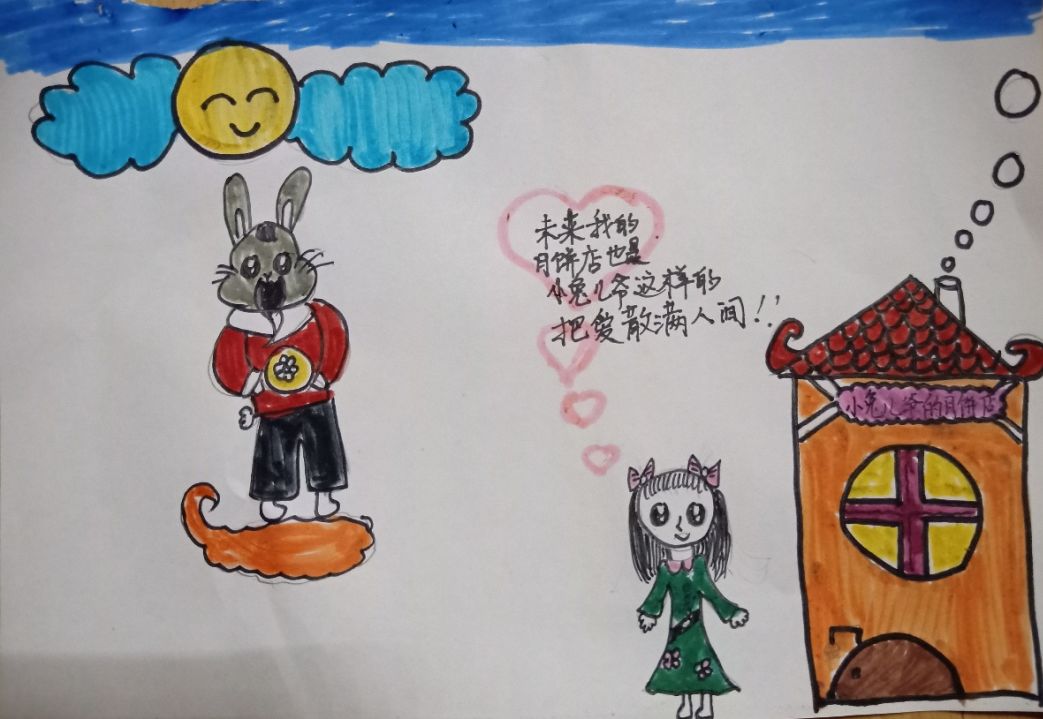 未来我的
月饼店也是
小兔儿爷这样的
把爱散满人间!!
小兔儿爷的月饼店